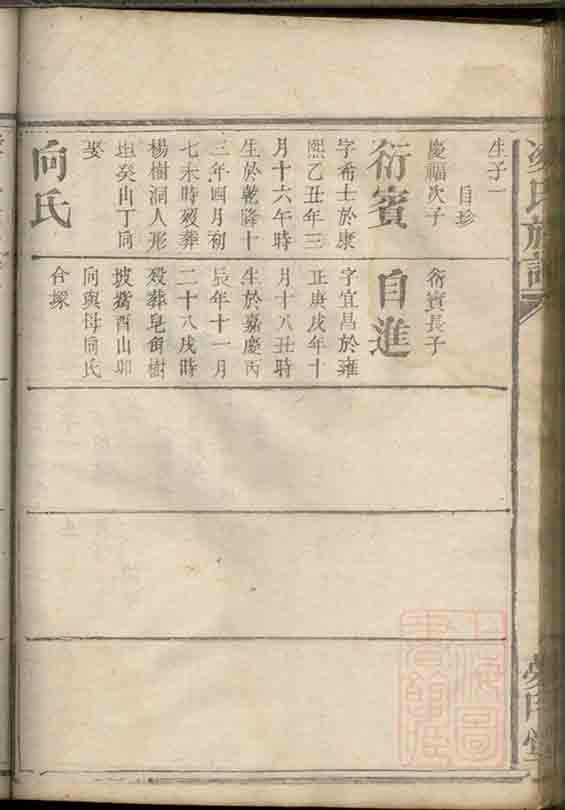 生子一
自珍
慶福次子
衍賓
字希士於康
熙乙丑年三
月十六午時
生於乾隆十
三年四月初
七未時歿葬
楊樹洞人形
坦癸山丁向
娶
向氏
衍賓長子
自進
字宜昌於雍
正庚戌年十
月十八丑時
生於嘉慶丙
辰年十一月
二十八戌時
歿葬皂角樹
坡酉山卯
向與母向氏
合塚
氏族譜
上海圖
書館藏